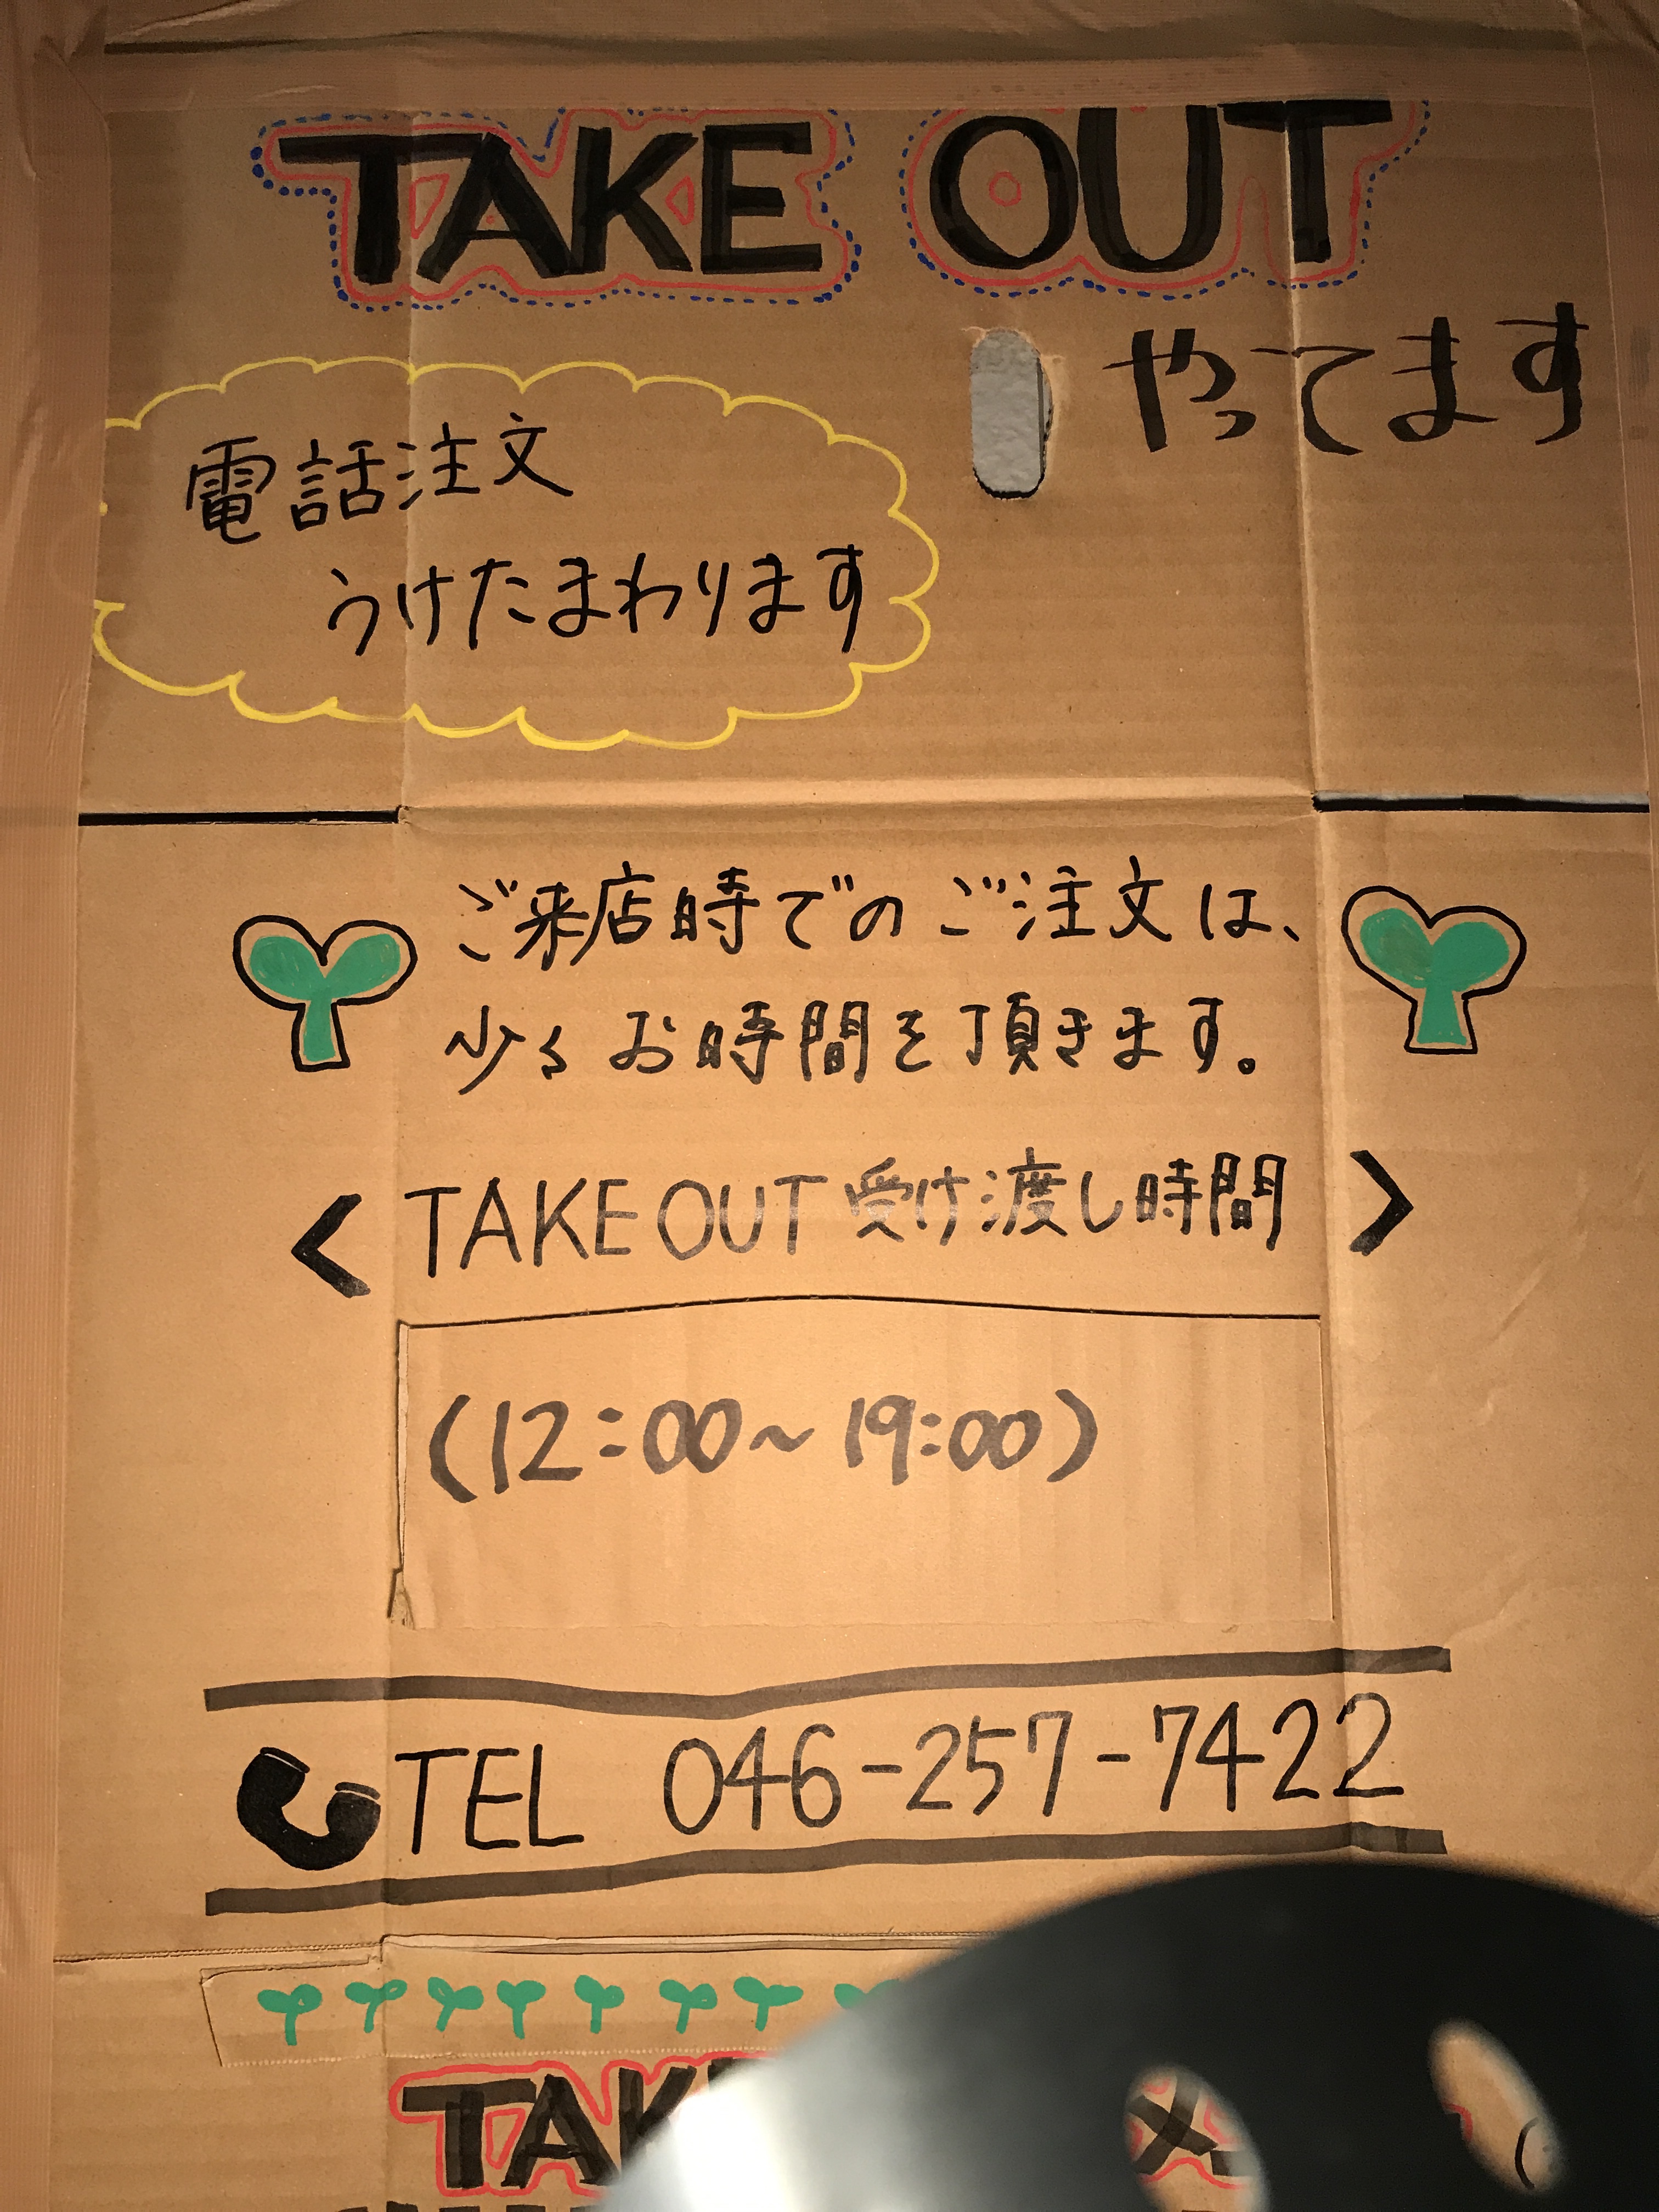 TAKE OUT
やってます
電話注文
うけたまわります
ご来店時でのご注文は、
少々お時間を頂きます。
< TAKE OUT 受け渡し時間 >
(12:00~19:00)
TEL 046-257-7422